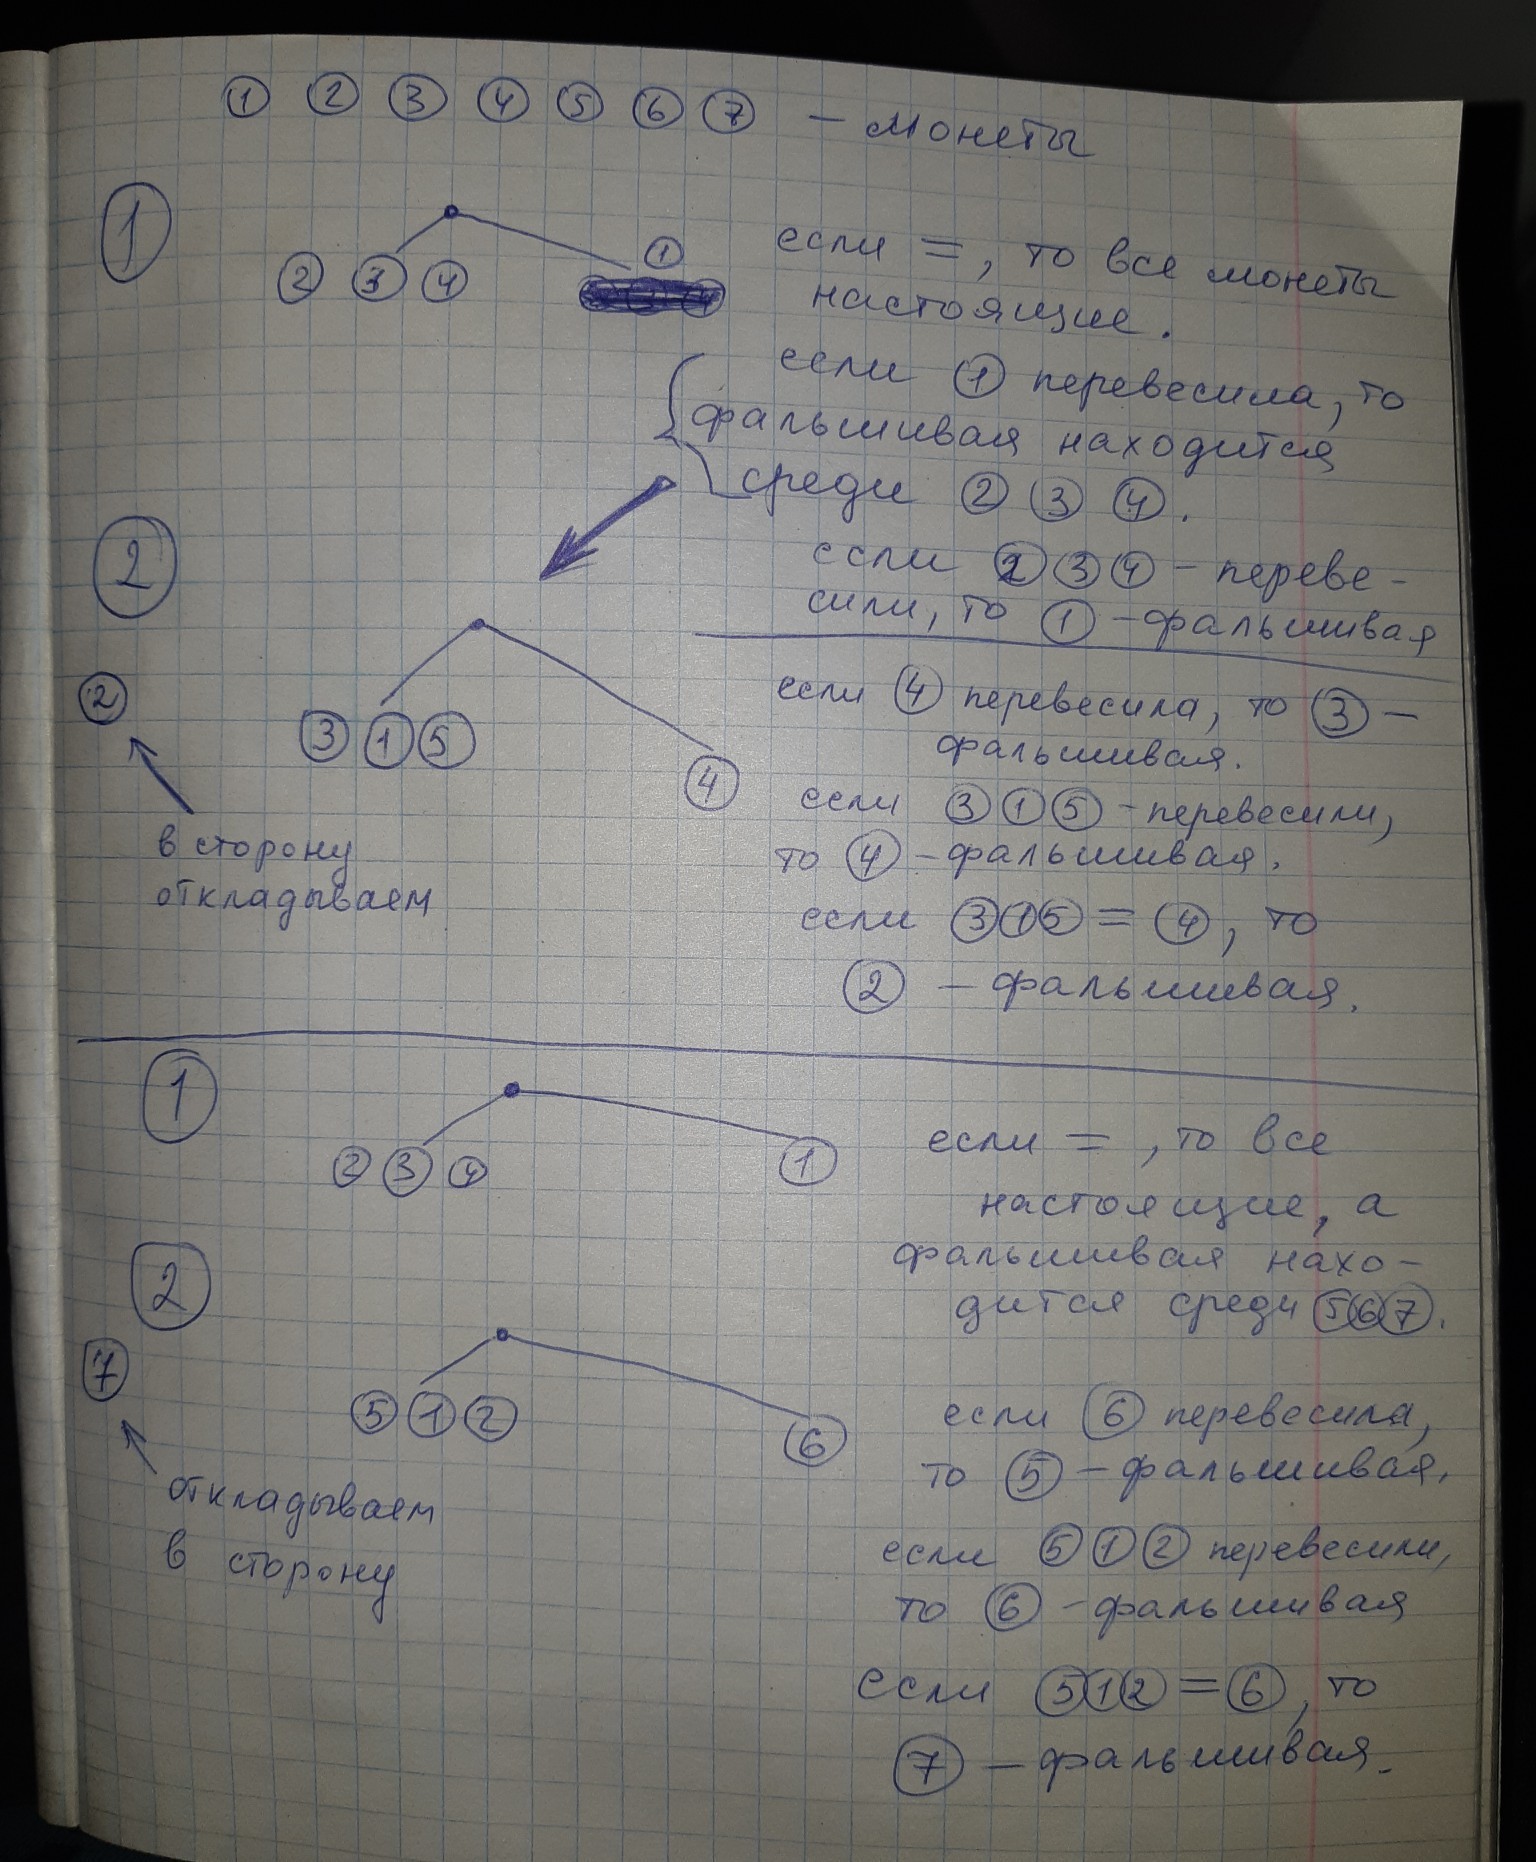 1 2 3 4 5 6 7 – монеты
1
2 3 4
1
если =, то все монеты
настоящие.
если 1 перевесила, то
фальшивая находится
среди 2 3 4.
если 2 3 4 – переве-
сили, то 1 – фальшивая
2
2
3 1 5
4
в сторону
откладываем
если 4 перевесила, то 3 –
фальшивая.
если 3 1 5 – перевесили,
то 4 – фальшивая.
если 3 1 5 = 4, то
2 – фальшивая.
1
2 3 4
1
если =, то все
настоящие, а
фальшивая нахо-
дится среди 5 6 7.
2
7
5 1 2
6
откладываем
в сторону
если 6 перевесила,
то 5 – фальшивая.
если 5 1 2 перевесили,
то 6 – фальшивая
если 5 1 2 = 6, то
7 – фальшивая.